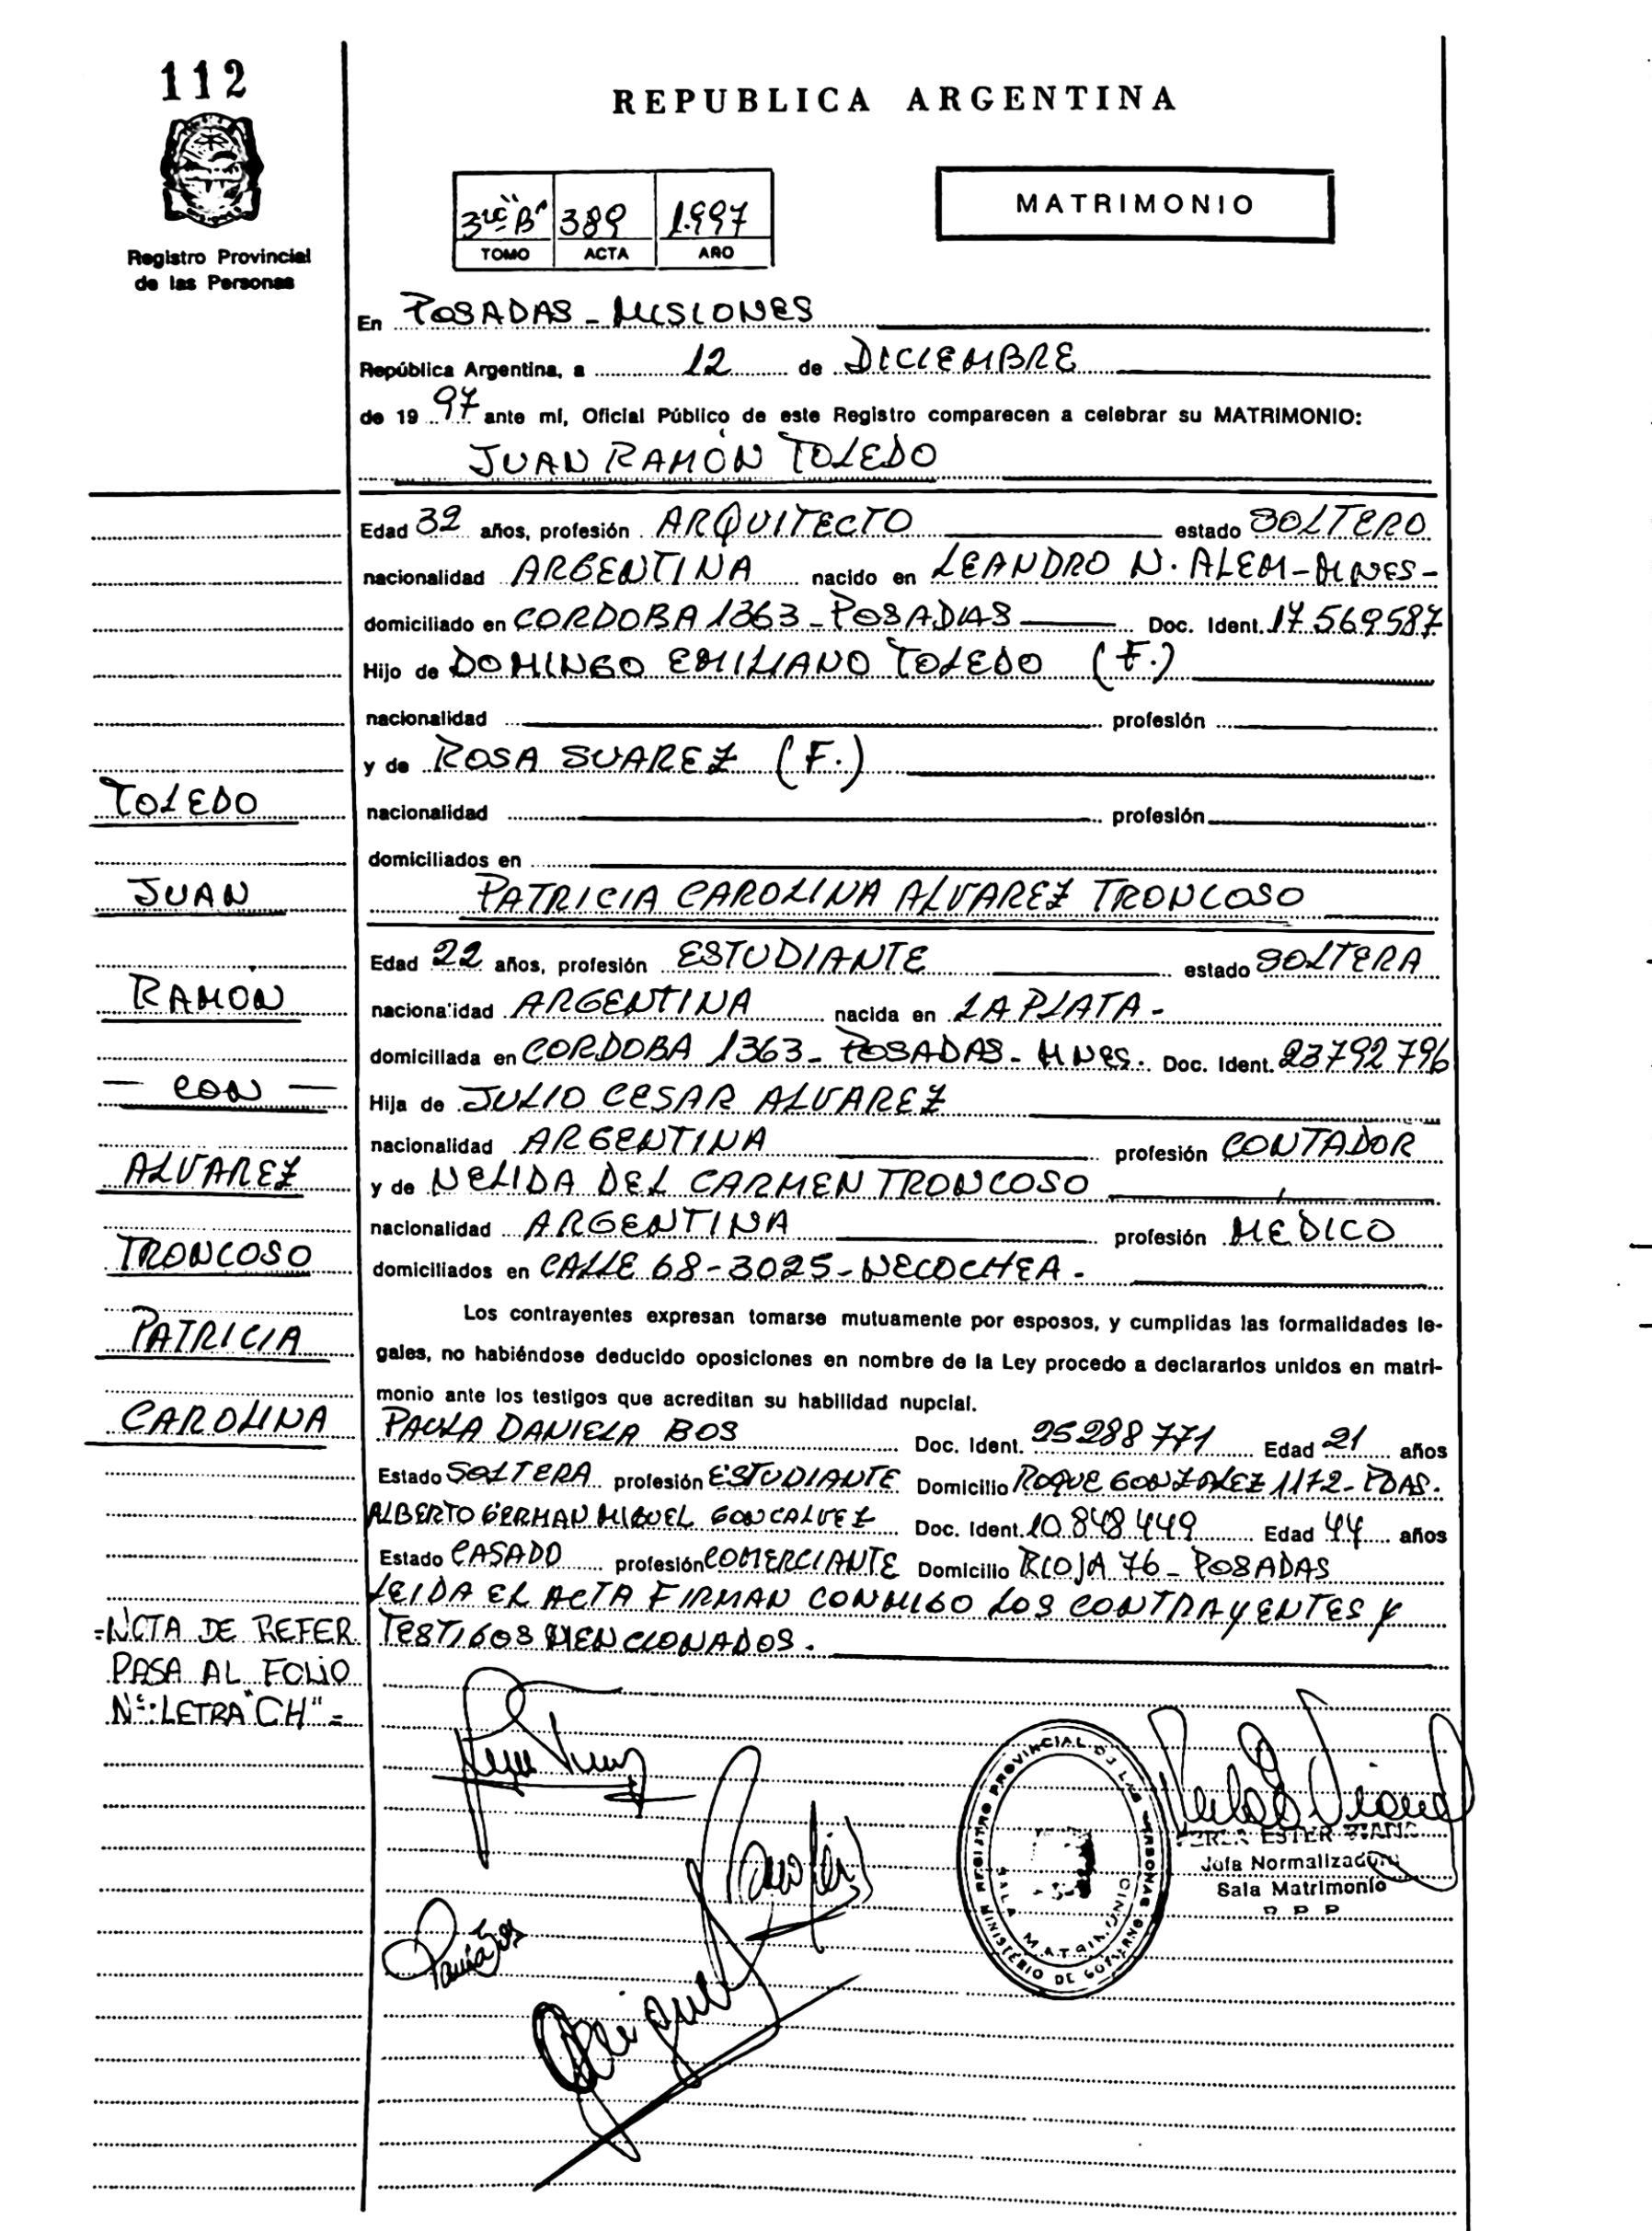 112
REPUBLICA ARGENTINA
MATRIMONIO
3ro "B" 389 1.997
TOMO ACTA AÑO
Registro Provincial
de las Personas
En POSADAS - MISIONES
República Argentina, a 12 de DICIEMBRE
de 19 97 ante mí, Oficial Público de este Registro comparecen a celebrar su MATRIMONIO:
JUAN RAMÓN TOLEDO
Edad 32 años, profesión ARQUITECTO estado SOLTERO
nacionalidad ARGENTINA nacido en LEANDRO N. ALEM-MNES-
domiciliado en CORDOBA 1363 - POSADAS Doc. Ident. 17.569587
Hijo de DOMINGO EMILIANO TOLEDO (F.)
nacionalidad profesión
y de ROSA SUAREZ (F.)
nacionalidad profesión
domiciliados en
PATRICIA CAROLINA ALVAREZ TRONCOSO
Edad 22 años, profesión ESTUDIANTE estado SOLTERA
nacionalidad ARGENTINA nacida en LA PLATA -
domiciliada en CORDOBA 1363 - POSADAS - MNES. Doc. Ident. 23792796
Hija de JULIO CESAR ALVAREZ
nacionalidad ARGENTINA profesión CONTADOR
y de NELIDA DEL CARMEN TRONCOSO
nacionalidad ARGENTINA profesión MEDICO
domiciliados en CALLE 68-3025-NECOCHEA.
Los contrayentes expresan tomarse mutuamente por esposos, y cumplidas las formalidades le-
gales, no habiéndose deducido oposiciones en nombre de la Ley procedo a declararlos unidos en matri-
monio ante los testigos que acreditan su habilidad nupcial.
PAULA DANIELA BOS Doc. Ident. 25288771 Edad 21 años
Estado SOLTERA profesión ESTUDIANTE Domicilio ROQUE GONZALEZ 1172- PDAS.
ALBERTO GERMAN MIGUEL GONCALVEZ Doc. Ident. 10.848449 Edad 44 años
Estado CASADO profesión COMERCIANTE Domicilio RIOJA 76 - POSADAS
LEIDA EL ACTA FIRMAN CONMIGO LOS CONTRAYENTES Y
TESTIGOS MENCIONADOS.
TOLEDO
JUAN
RAMON
- CON -
ALVAREZ
TRONCOSO
PATRICIA
CAROLINA
=NOTA DE REFER.
PASA AL FOLIO
Nº: LETRA "CH" =
REGISTRO PROVINCIAL DE LAS PERSONAS
SALA MATRIMONIO
MINISTERIO DE GOBIERNO
ESTER
Jefa Normalizadora
Sala Matrimonio
R P P
Paula Bos